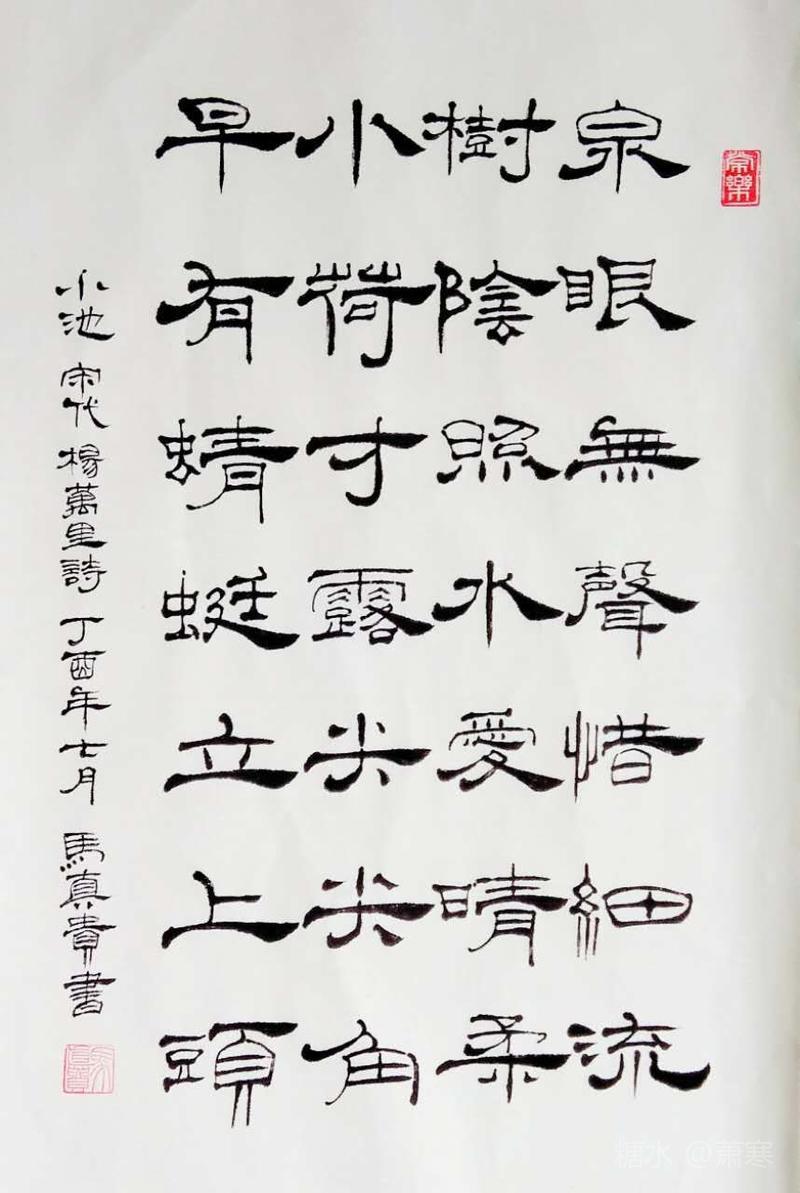 泉眼無聲惜細流
樹陰照水愛晴柔
小荷才露尖尖角
早有蜻蜓立上頭
小池 宋代楊萬里詩 丁酉年七月 馬真貴書
常樂
糖水 @蕭寒